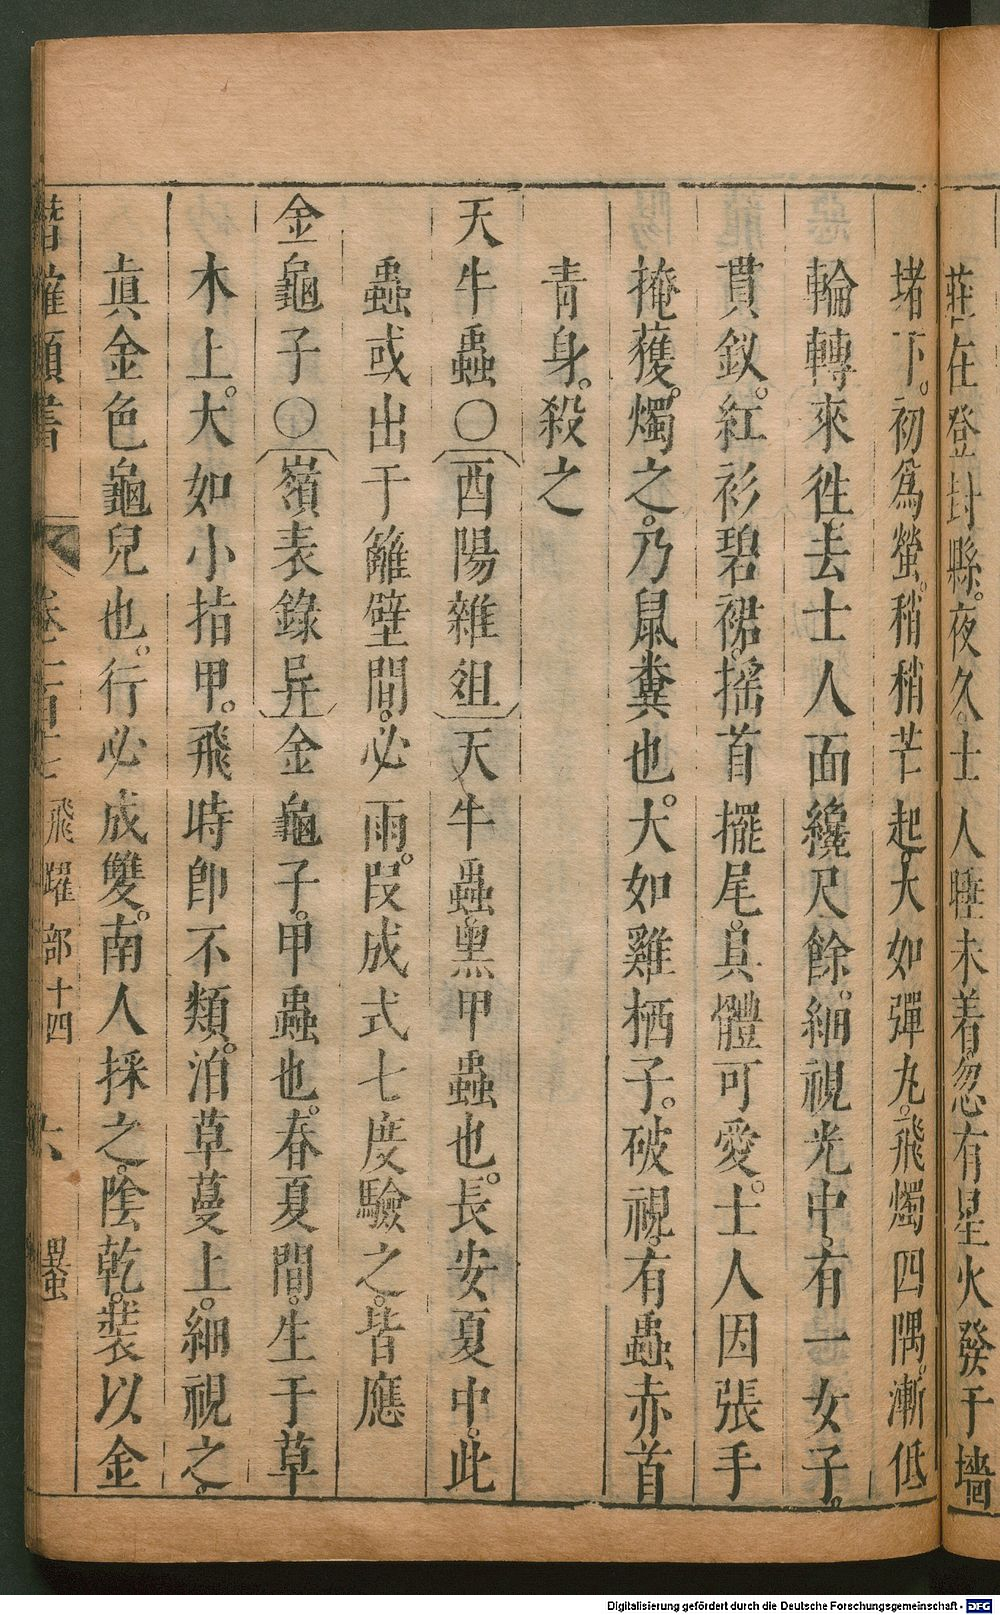 莊在登封縣。夜久。士人睡未着。忽有星火發于墻
堵下。初爲螢。稍稍芒起。大如彈丸。飛燭四隅。漸低
輪轉來徃去士人面纔尺餘。細視光中。有一女子。
貫釵。紅衫碧裙。揺首擺尾。具體可愛。士人因張手
掩獲。燭之。乃鼠糞也。大如雞栖子。破視。有蟲赤首
青身。殺之
天牛蟲○〔酉陽雜俎〕天牛蟲。黑甲蟲也。長安夏中。此
蟲或出于籬壁間。必雨。段成式七度驗之。皆應
金龜子○〔嶺表錄异〕金龜子。甲蟲也。春夏間。生于草
木上。大如小指甲。飛時卽不類。泊草蔓上。細視之。
眞金色龜兒也。行必成雙。南人採之。陰乾。裝以金
潛確類書 卷一百十七 飛躍部十四 六 異蟲
Digitalisierung gefördert durch die Deutsche Forschungsgemeinschaft - DFG